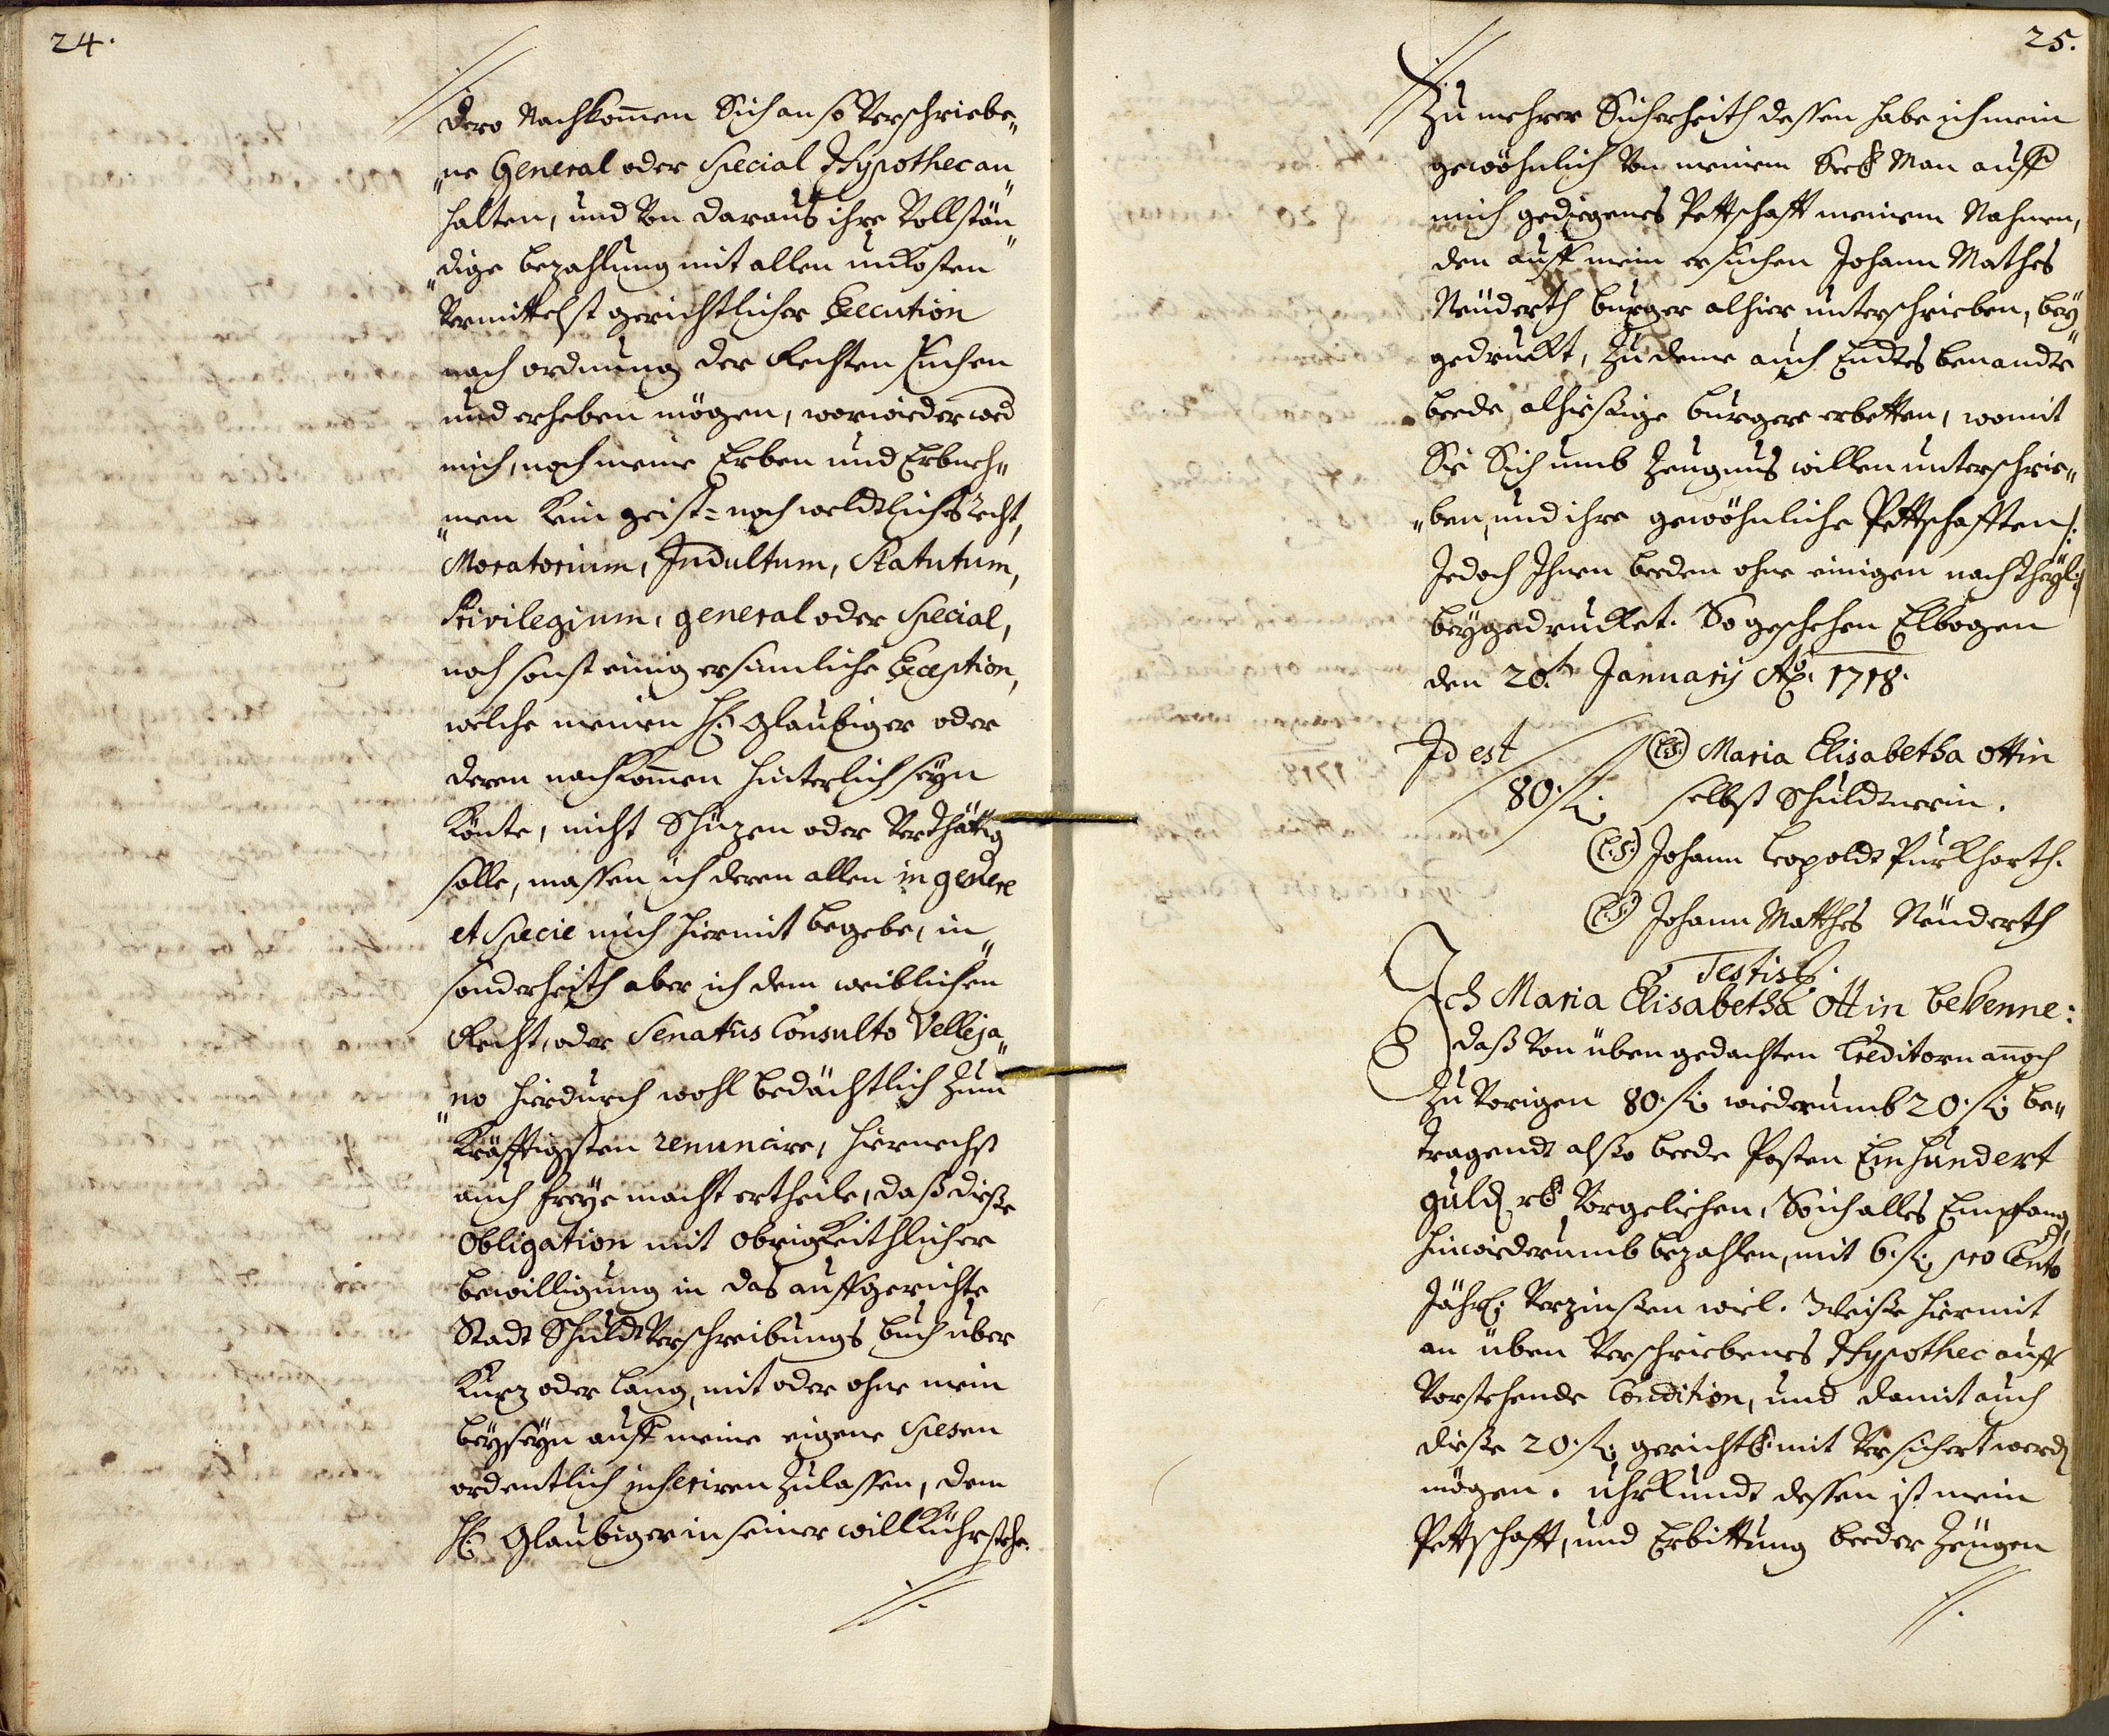 24.
dero Nachkom̅en Sich an so Verschriebe„
„ne General oder Special Hypothec an„
halten, und Von daraus ihre Vollstän„
„dige bezahlung mit allen unkosten
Vermittelst gerichtlicher Execution
nach ordnung der Rechten suchen
und erheben mögen, worwieder wed
mich, noch meine Erben und Erbneh„
„men kein geist= noch weldtliches recht,
Moratorium, Indultum, Statutum,
Privilegium, general oder Special,
noch sonst einig ersinnliche Exception,
welche meinen H: Glaubiger oder
deren nachkom̅en hinterlich seyn
könte, nicht Schüzen oder Verthätig
solle, massen ich deren allen in genere
et Specie mich hiermit begebe, in„
sonderheith aber ich dem weiblichen
Recht, oder Senatus Consulto Velleja„
„no hierdurch wohl bedächtlich zum
kräfftigsten renuncire, hiernechst
auch freye macht ertheile, daß dieße
Obligation mit Obrigkeithlicher
bewilligung in das auffgerichte
Stadt Schuldt Verschreibungs buch uber
kurz oder lang, mit oder ohne mein
beyseyn auff meine eigene Spesen
ordentlich inseriren zulassen, dem
H: Glaubiger in seiner willkühr stehe.
//.
25.
Zu mehrer Sicherheith dessen habe ich mein
gewöhnlich Von meinem Seel: Man auff
mich gediegenes Pettschafft meinem Nahmen,
den auff mein ersuchen Johann Mathes
Neüderth burger alhier unterschrieben, bey„
gedruckt, Zu deme auch Endtes benandte
beede alhießige burgere erbetten, womit
Sie Sich umb Zeugnus willen unterschrie„
„ben, und ihre gewöhnliche Pettschafften /:
Jedoch Ihnen beeden ohne einigen nachtheyl :/
beygedrucket. So geschehen Elbogen
den 20.t Januarij Ao: 1718.
Id est
80. f:
(L:S:) Maria Elisabetha Ottin
selbst Schuldnerin.
(L:S:) Johann Leopoldt Purkharth.
(L:S:) Johann Matthes Neüderth
Testis
Ich Maria Elisabetha Ottin bekenne:
daß Von üben gedachten Creditorn annoch
zu Vorigen 80. f: wiederumb 20. f: be„
tragendt alßo beede Posten Einhundert
guld rh: Vorgeliehen, So ich alles Empfang
hinwiederumb bezahlen, mit 6. f: pro Cento
Jährl: Verzinßen wiel. Weiße hiermit
an üben Verschriebenes Hypothec auff
Vorstehende Condition, und damit auch
dieße 20. f: gerichtl: mit Versichert werd
mögen. Uhrkundt dessen ist mein
Pettschafft, und Erbittung beeder Zeugen
//.